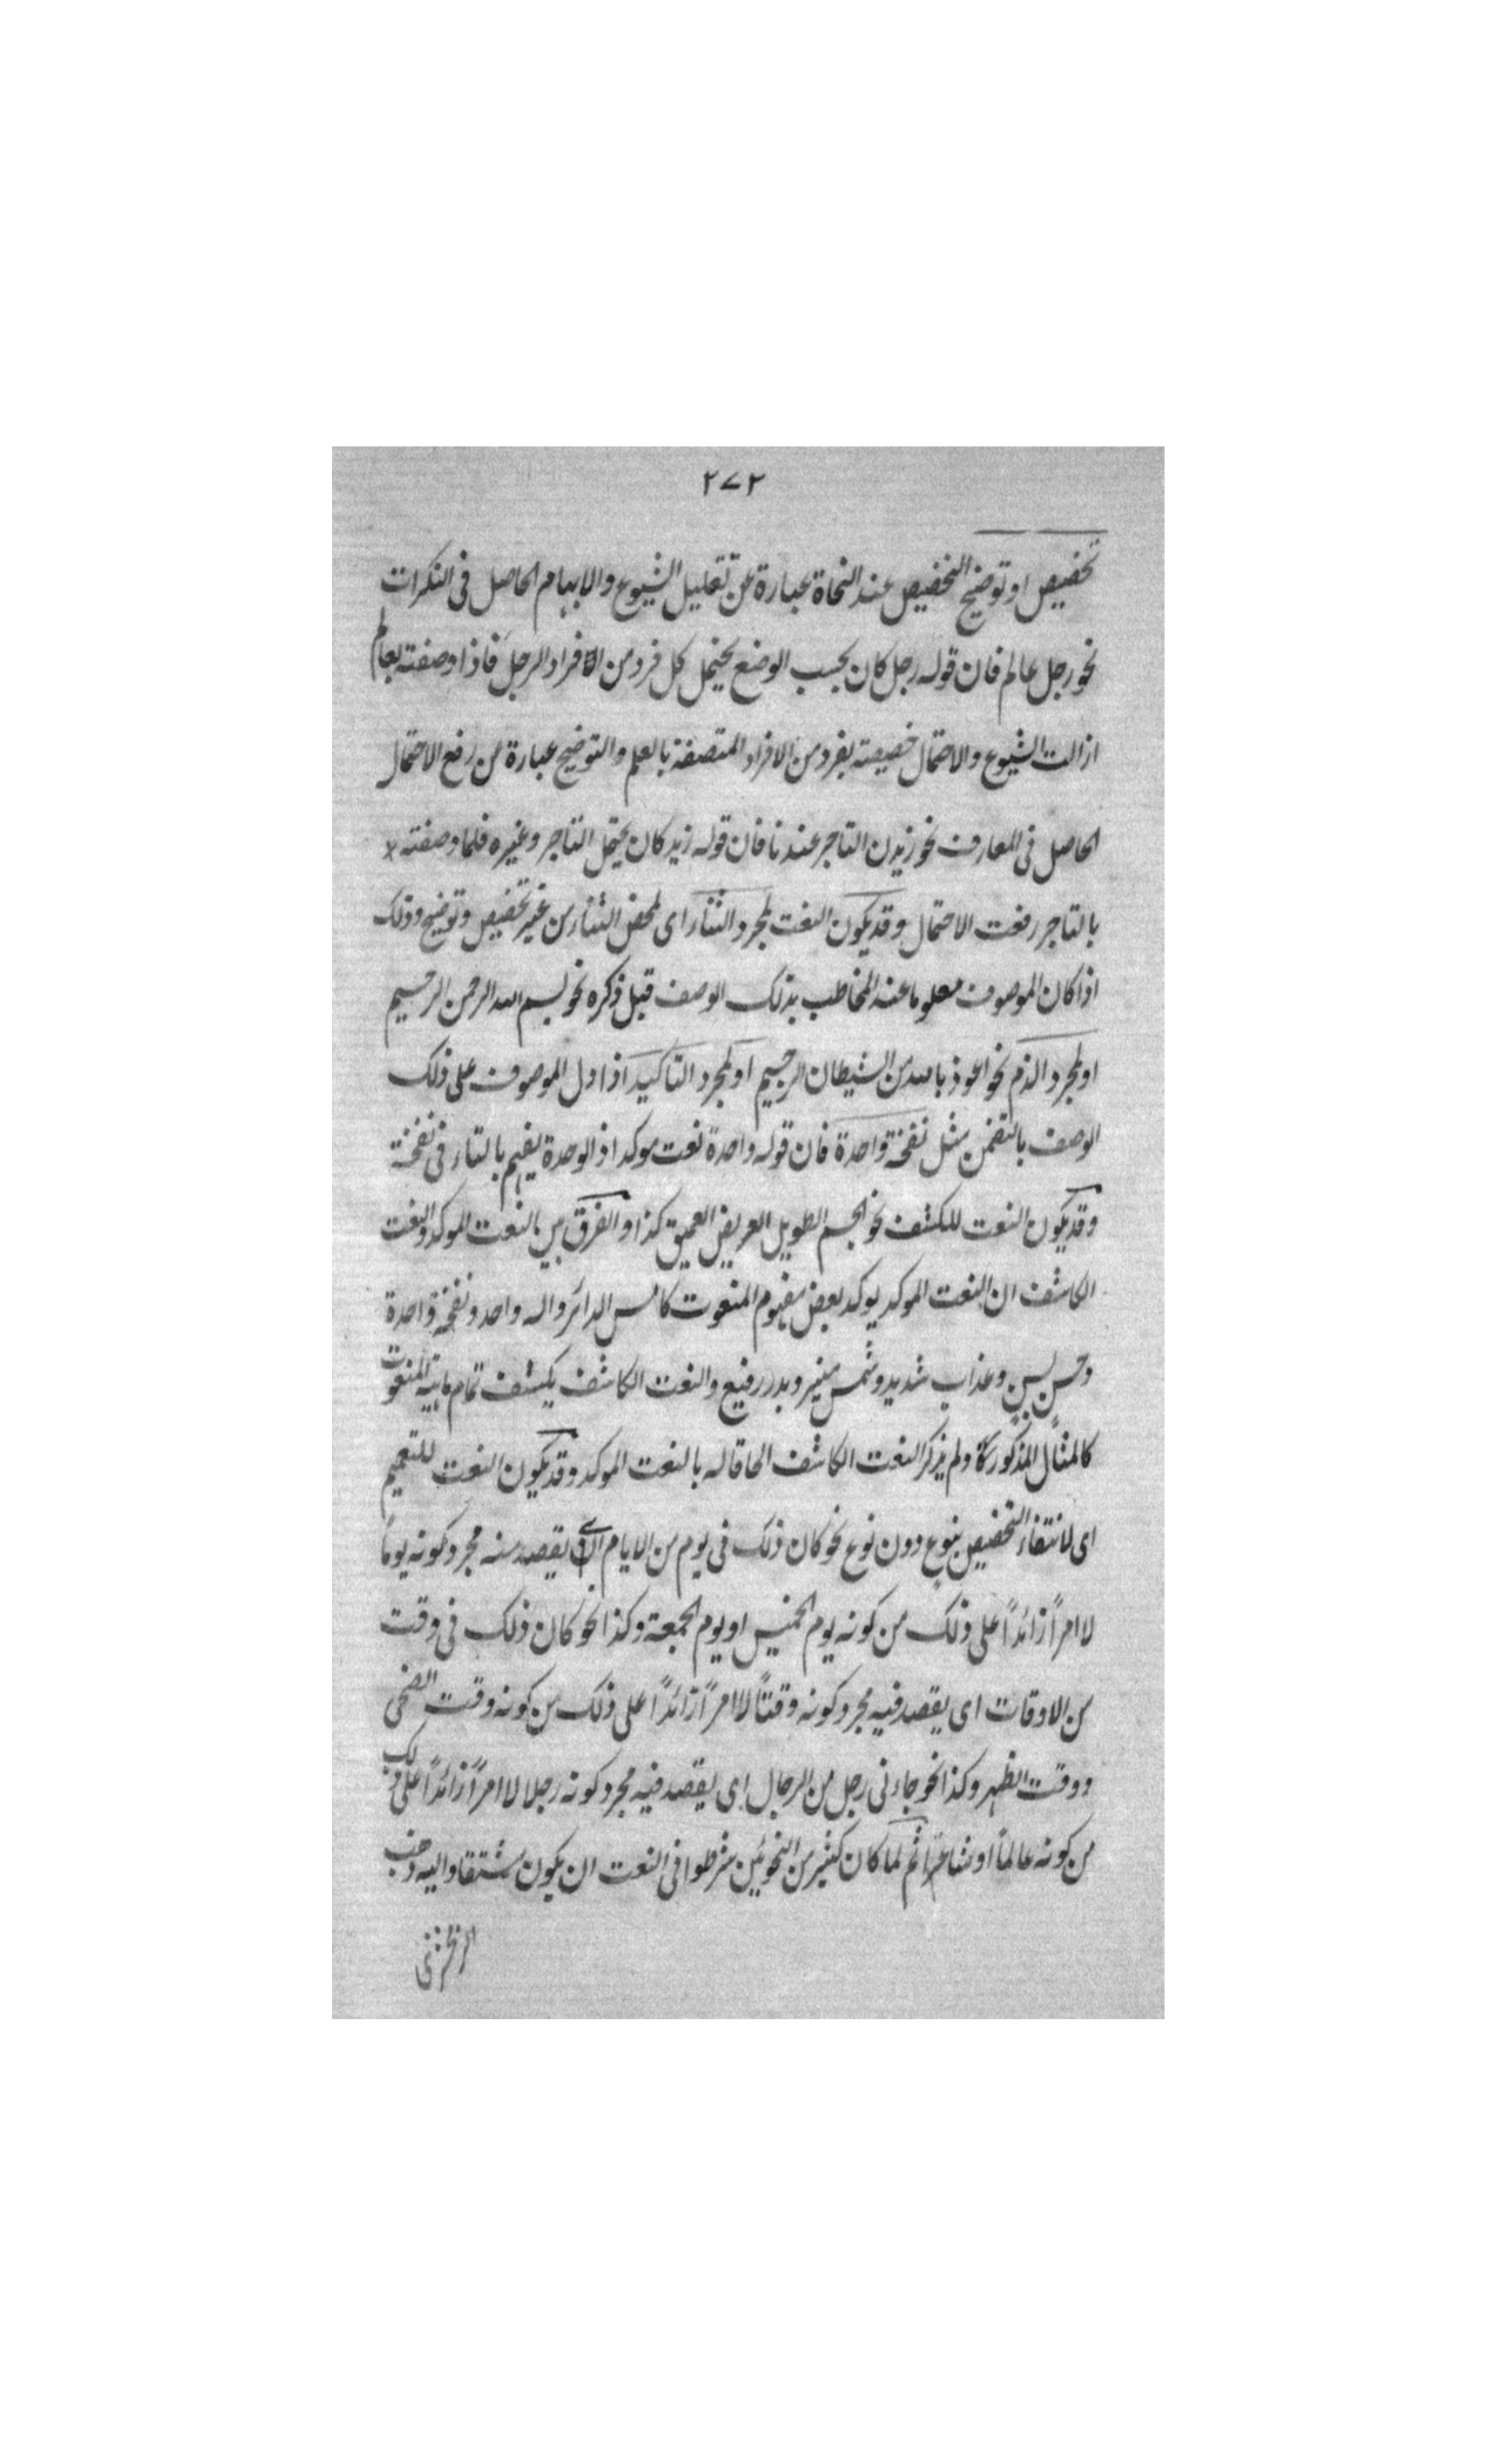 ٢٧٢
تخصيص او توضيح التخصيص عند النحاة عبارة عن تقليل الشيوع والابهام الحاصل فى النكرات
نحو رجل عالم فان قوله رجل كان بحسب الوضع يحتمل كل فرد من الافراد الرجل فاذا وصفته بعالم
ازالت الشيوع والاحتمال خصيصته بفرد من الافراد المتصفة بالعلم والتوضيح عبارة من رفع الاحتمال
الحاصل فى المعارف نحو زيدن التاجر عندنا فان قوله زيد كان يحتمل التاجر وغيره فلما وصفته
بالتاجر رفعت الاحتمال وقد يكون النعت لمجرد الثناء اى لمحض الثناء من غير تخصيص وتوضيح وذلك
اذا كان الموصوف معلوما عند المخاطب بذلك الوصف قبل ذكره نحو بسم الله الرحمن الرحيم
او لمجرد الذم نحو اعوذ بالله من الشيطان الرجيم او لمجرد التاكيد اذا دل الموصوف على ذلك
الوصف بالتضمن مثل نفخة واحدة فان قوله واحدة نعت موكد اذ الوحدة يفهم بالتاء فى نفخة
وقد يكون النعت للكشف نحو الجسم الطويل العريض العميق كذا والفرق بين النعت الموكد والنعت
الكاشف ان النعت الموكد يوكد بعض مفهوم المنعوت كامس الدائر واله واحد ونفخة واحدة
وحسن بسن وعذاب شديد وشمس منير وبدر رفيع والنعت الكاشف يكشف تمام ماهية المنعوت
كالمثال المذكور ولم يذكر النعت الكاشف الحاقا له بالنعت الموكد وقد يكون النعت للتعميم
اى لانتفاء التخصيص بنوع دون نوع نحو كان ذلك فى يوم من الايام اى يقصد منه مجرد كونه يوماً
لا امراً زائداً على ذلك من كونه يوم الخميس او يوم الجمعة وكذا نحو كان ذلك فى وقت
من الاوقات اى يقصد فيه مجرد كونه وقتاً لا امراً زائداً على ذلك من كونه وقت الضحى
ووقت الظهر وكذا نحو جاءنى رجل من الرجال اى يقصد فيه مجرد كونه رجلا لا امراً زائداً على ذلك
من كونه عالماً او شاعراً ثم لما كان كثير من النحويين شرطوا فى النعت ان يكون مشتقا واليه ذهب